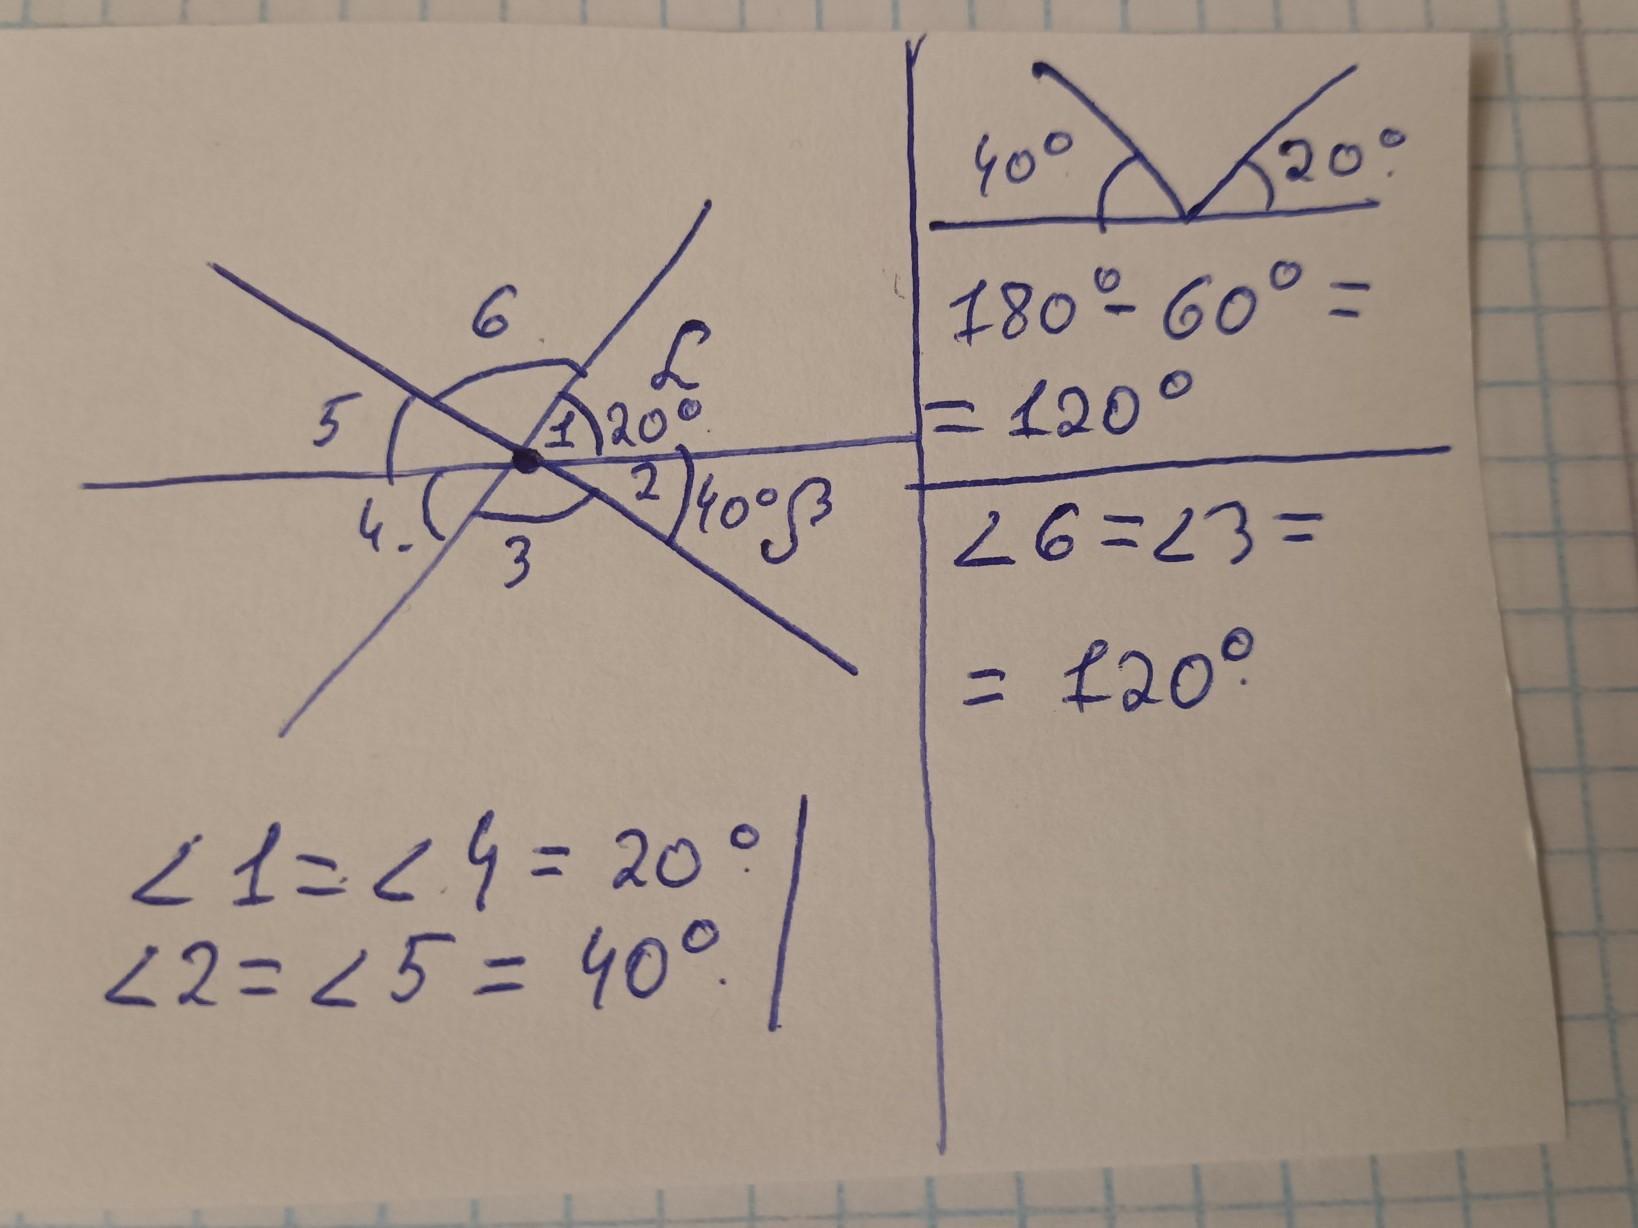 6
α
5
1 20°
2 40° β
4.
3
∠1=∠4=20°.
∠2=∠5=40°.
40° 20°.
180°-60°=
=120°
∠6=∠3=
=120°.